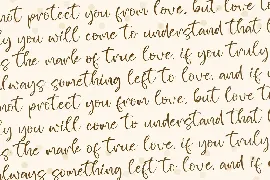 not protect you from love, but love t
ly you will come to understand that l
s the mark of true love. if you truly
always something left to love. and if
not protect you from love, but love to
ly you will come to understand that l
s the mark of true love. if you truly
always something left to love. and if